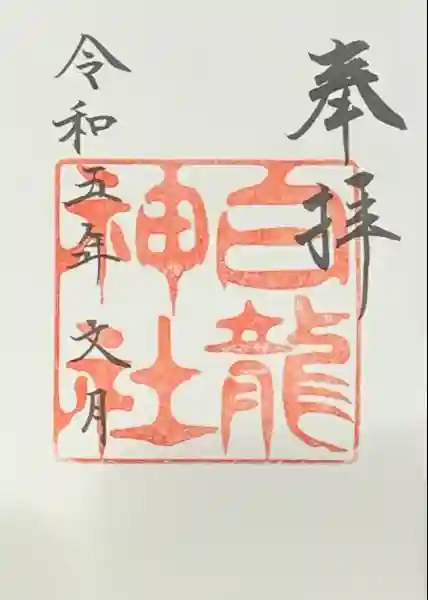 奉拝
白龍
神社
令和五年 文月